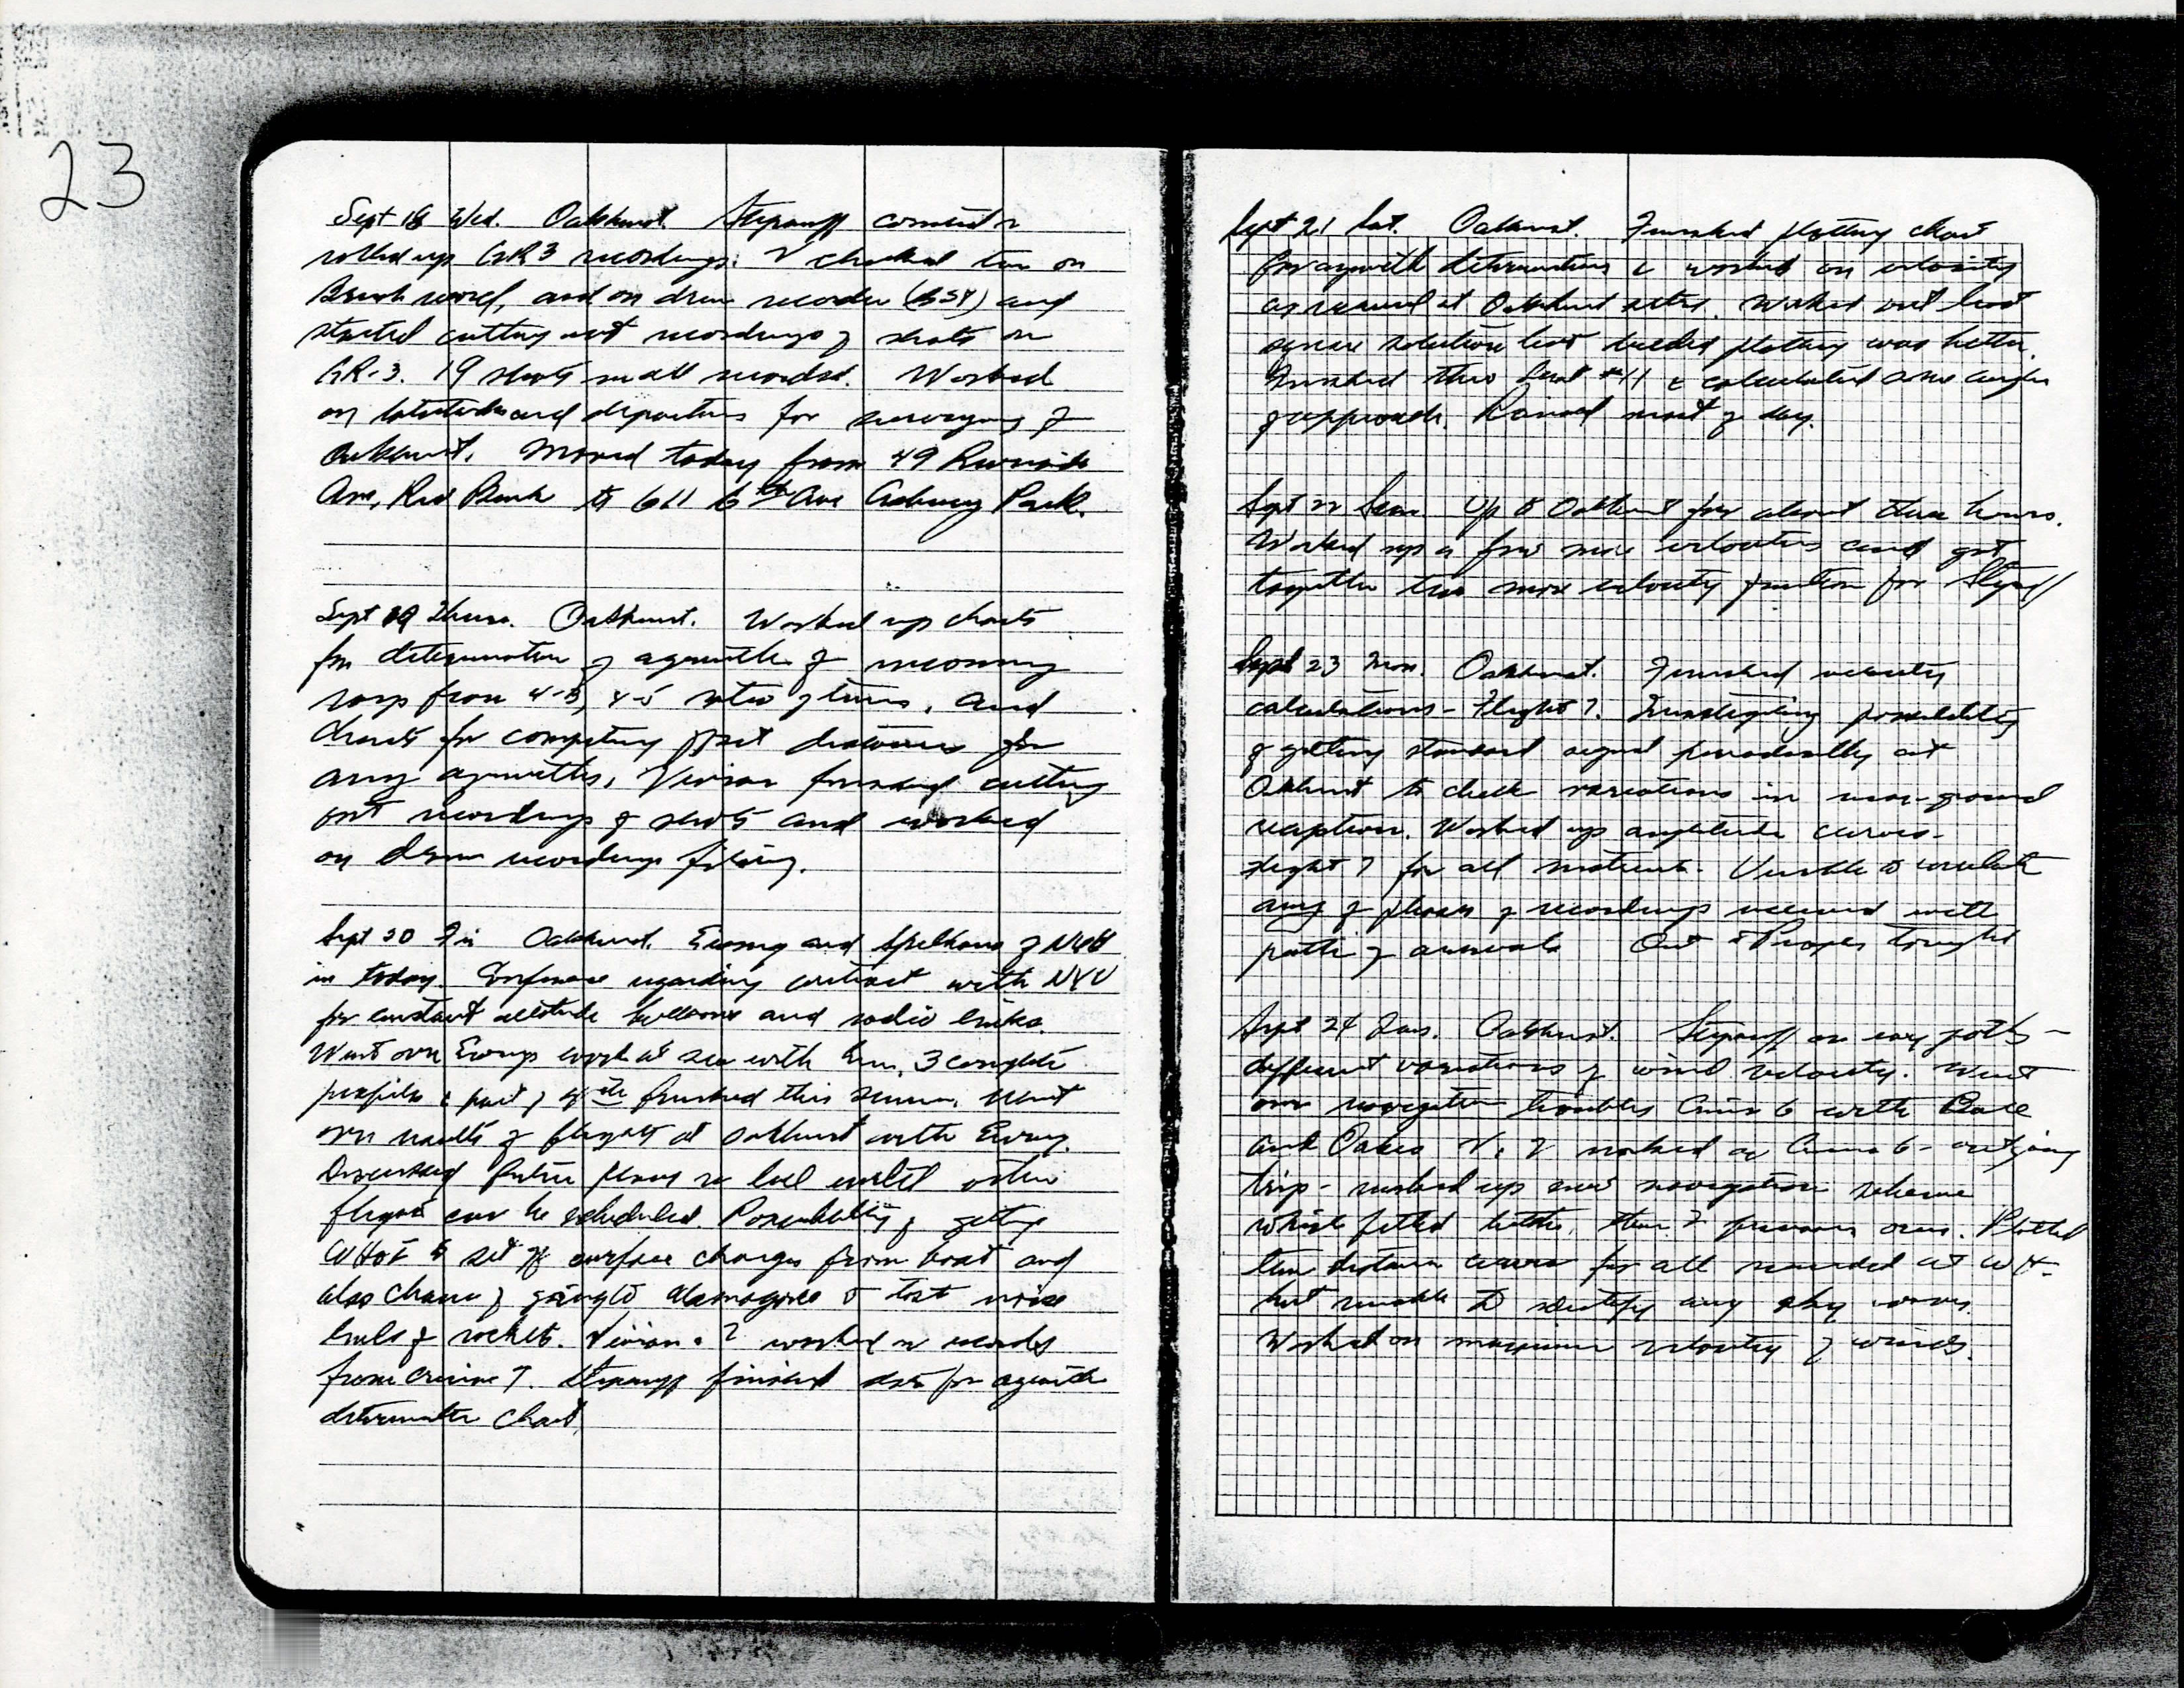 23
Sept 18 Wed. Oakhurst. Stepanoff corrected &
rolled up GR3 recordings. I checked time on
Brush record, and on drum recorder (BSY) and
started cutting out recordings of shots on
GR-3. 19 shots in all recorded. Worked
on latitudes and departures for surveying of
Oakhurst. Moved today from 49 Riverside
Ave, Red Bank to 611 6th Ave Asbury Park.
Sept 19 Thurs. Oakhurst. Worked up charts
for determination of azimuth of incoming
rays from 4-3, 4-5 ratio of times, and
charts for computing distances for
any azimuths. Vivian finished cutting
out recordings of shots and worked
on drum recordings filing.
Sept 20 Fri Oakhurst. Ewing and of
in today. Conference regarding contract with NYU
for constant altitude balloons and radio links.
Went over Ewings work at sea with him, 3 complete
profiles & part of 4th finished this summer. Went
over results of flights at Oakhurst with Ewing.
Discussed future plans to until other
flights can be scheduled. Possibility of getting
WHOI to set off surface charges from boat and
also chance of going to Alamogordo to test noise
levels of rockets. Vivian & I worked on records
from Cruise 7. Stepanoff finished data for azimuth
determination chart.
Sept 21 Sat. Oakhurst. Finished plotting chart
for azimuth determinations & worked on velocity
as received at Oakhurst Worked out least
square solution but decided plotting was better.
Finished thru shot #11 & calculated some angles
of approach. Rained most of day.
Sept 22 Sun Up to Oakhurst for about three hours.
Worked up a few more velocities and got
together two more velocity for Stepanoff
Sept 23 Mon. Oakhurst. Finished velocity
calculations - Flight 7. Investigating possibility
of getting standard signal periodically at
Oakhurst to check variations in near-ground
reception. Worked up amplitude curves -
flight 7 for all Unable to correlate
any of phases of recordings received with
path of arrivals Out to tonight
Sept 24 Tues. Oakhurst. Stepanoff on ray paths -
different variations of wind velocity. Went
over navigation troubles Cruise 6 with
and Oakes V. & I worked on Cruise 6 - outgoing
trip - worked up new navigation scheme
which fitted better than previous ones. Plotted
time distance curves for all recorded at WH -
but unable to identify any sky waves.
Worked on maximum velocity of winds.